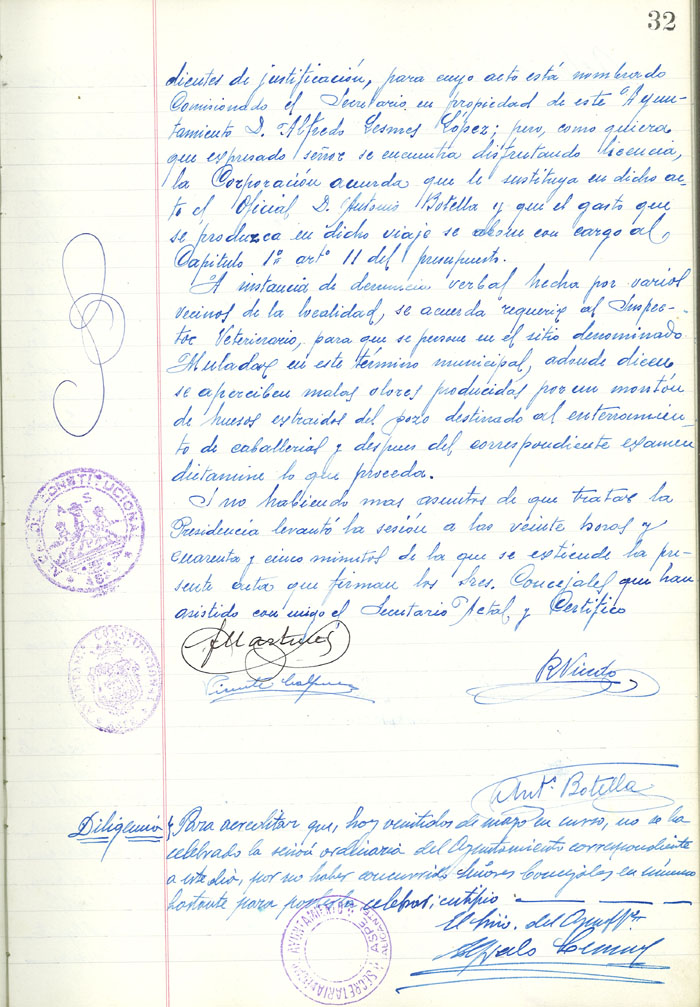 32
dientes de justificación, para cuyo acto está nombrado
Comisionado el Secretario en propiedad de este Ayun-
tamiento D. Alfredo Lesmes López; pero, como quiera
que expresado señor se encuentra disfrutando licencia,
la Corporación acuerda que le sustituya en dicho ac-
to el Oficial D. Antonio Botella y que el gasto que
se produzca en dicho viaje se abone con cargo al
Capitulo 1º artº 11 del presupuesto.
A instancia de denuncia verbal hecha por varios
vecinos de la localidad, se acuerda requerir al Inspec-
tor Veterinario, para que se persone en el sitio denominado
Muladar en este término municipal, adonde dicen
se aperciben malos olores producidos por un montón
de huesos extraidos del pozo destinado al enterramien-
to de caballerias y despues del correspondiente examen
dictamine lo que proceda.
Y no habiendo mas asuntos de que tratar la
Presidencia levantó la sesión a las veinte horas y
cuarenta y cinco minutos de la que se extiende la pre-
sente acta que firman los Sres. Concejales que han
asistido con migo el Secretario Actal y Certifico
ALCALDIA CONSTITUCIONAL
ASPE
AYUNTAMIENTO CONSTITUCIONAL
Martínez
Vicente
R Vicedo
Antº Botella
Diligencia} Para acreditar que, hoy veintidos de mayo en curso, no se ha
celebrado la sesión ordinaria del Ayuntamiento correspondiente
a este dia, por no haber concurrido Señores Concejales en número
bastante para poderla celebrar, certifico:
El Srio. del Ayuntº.
Alfredo Lesmes
SECRETARIA DEL AYUNTAMIENTO
ASPE
(ALICANTE)